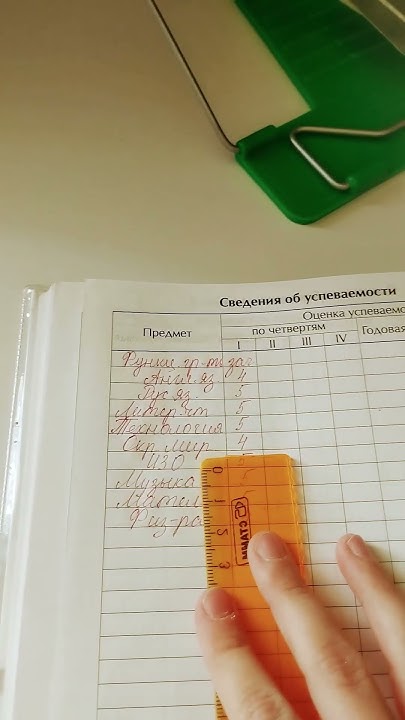 Сведения об успеваемости
Предмет
Оценка успеваемо
по четвертям
Годовая
I II III IV
Функц. гр-ть зач
Англ яз 4
Рус яз 5
Литер. чт 5
Технология 5
Окр. мир 4
ИЗО 5
Музыка 5
Матем
Физ-ра
0 1 2 3
СТАММ